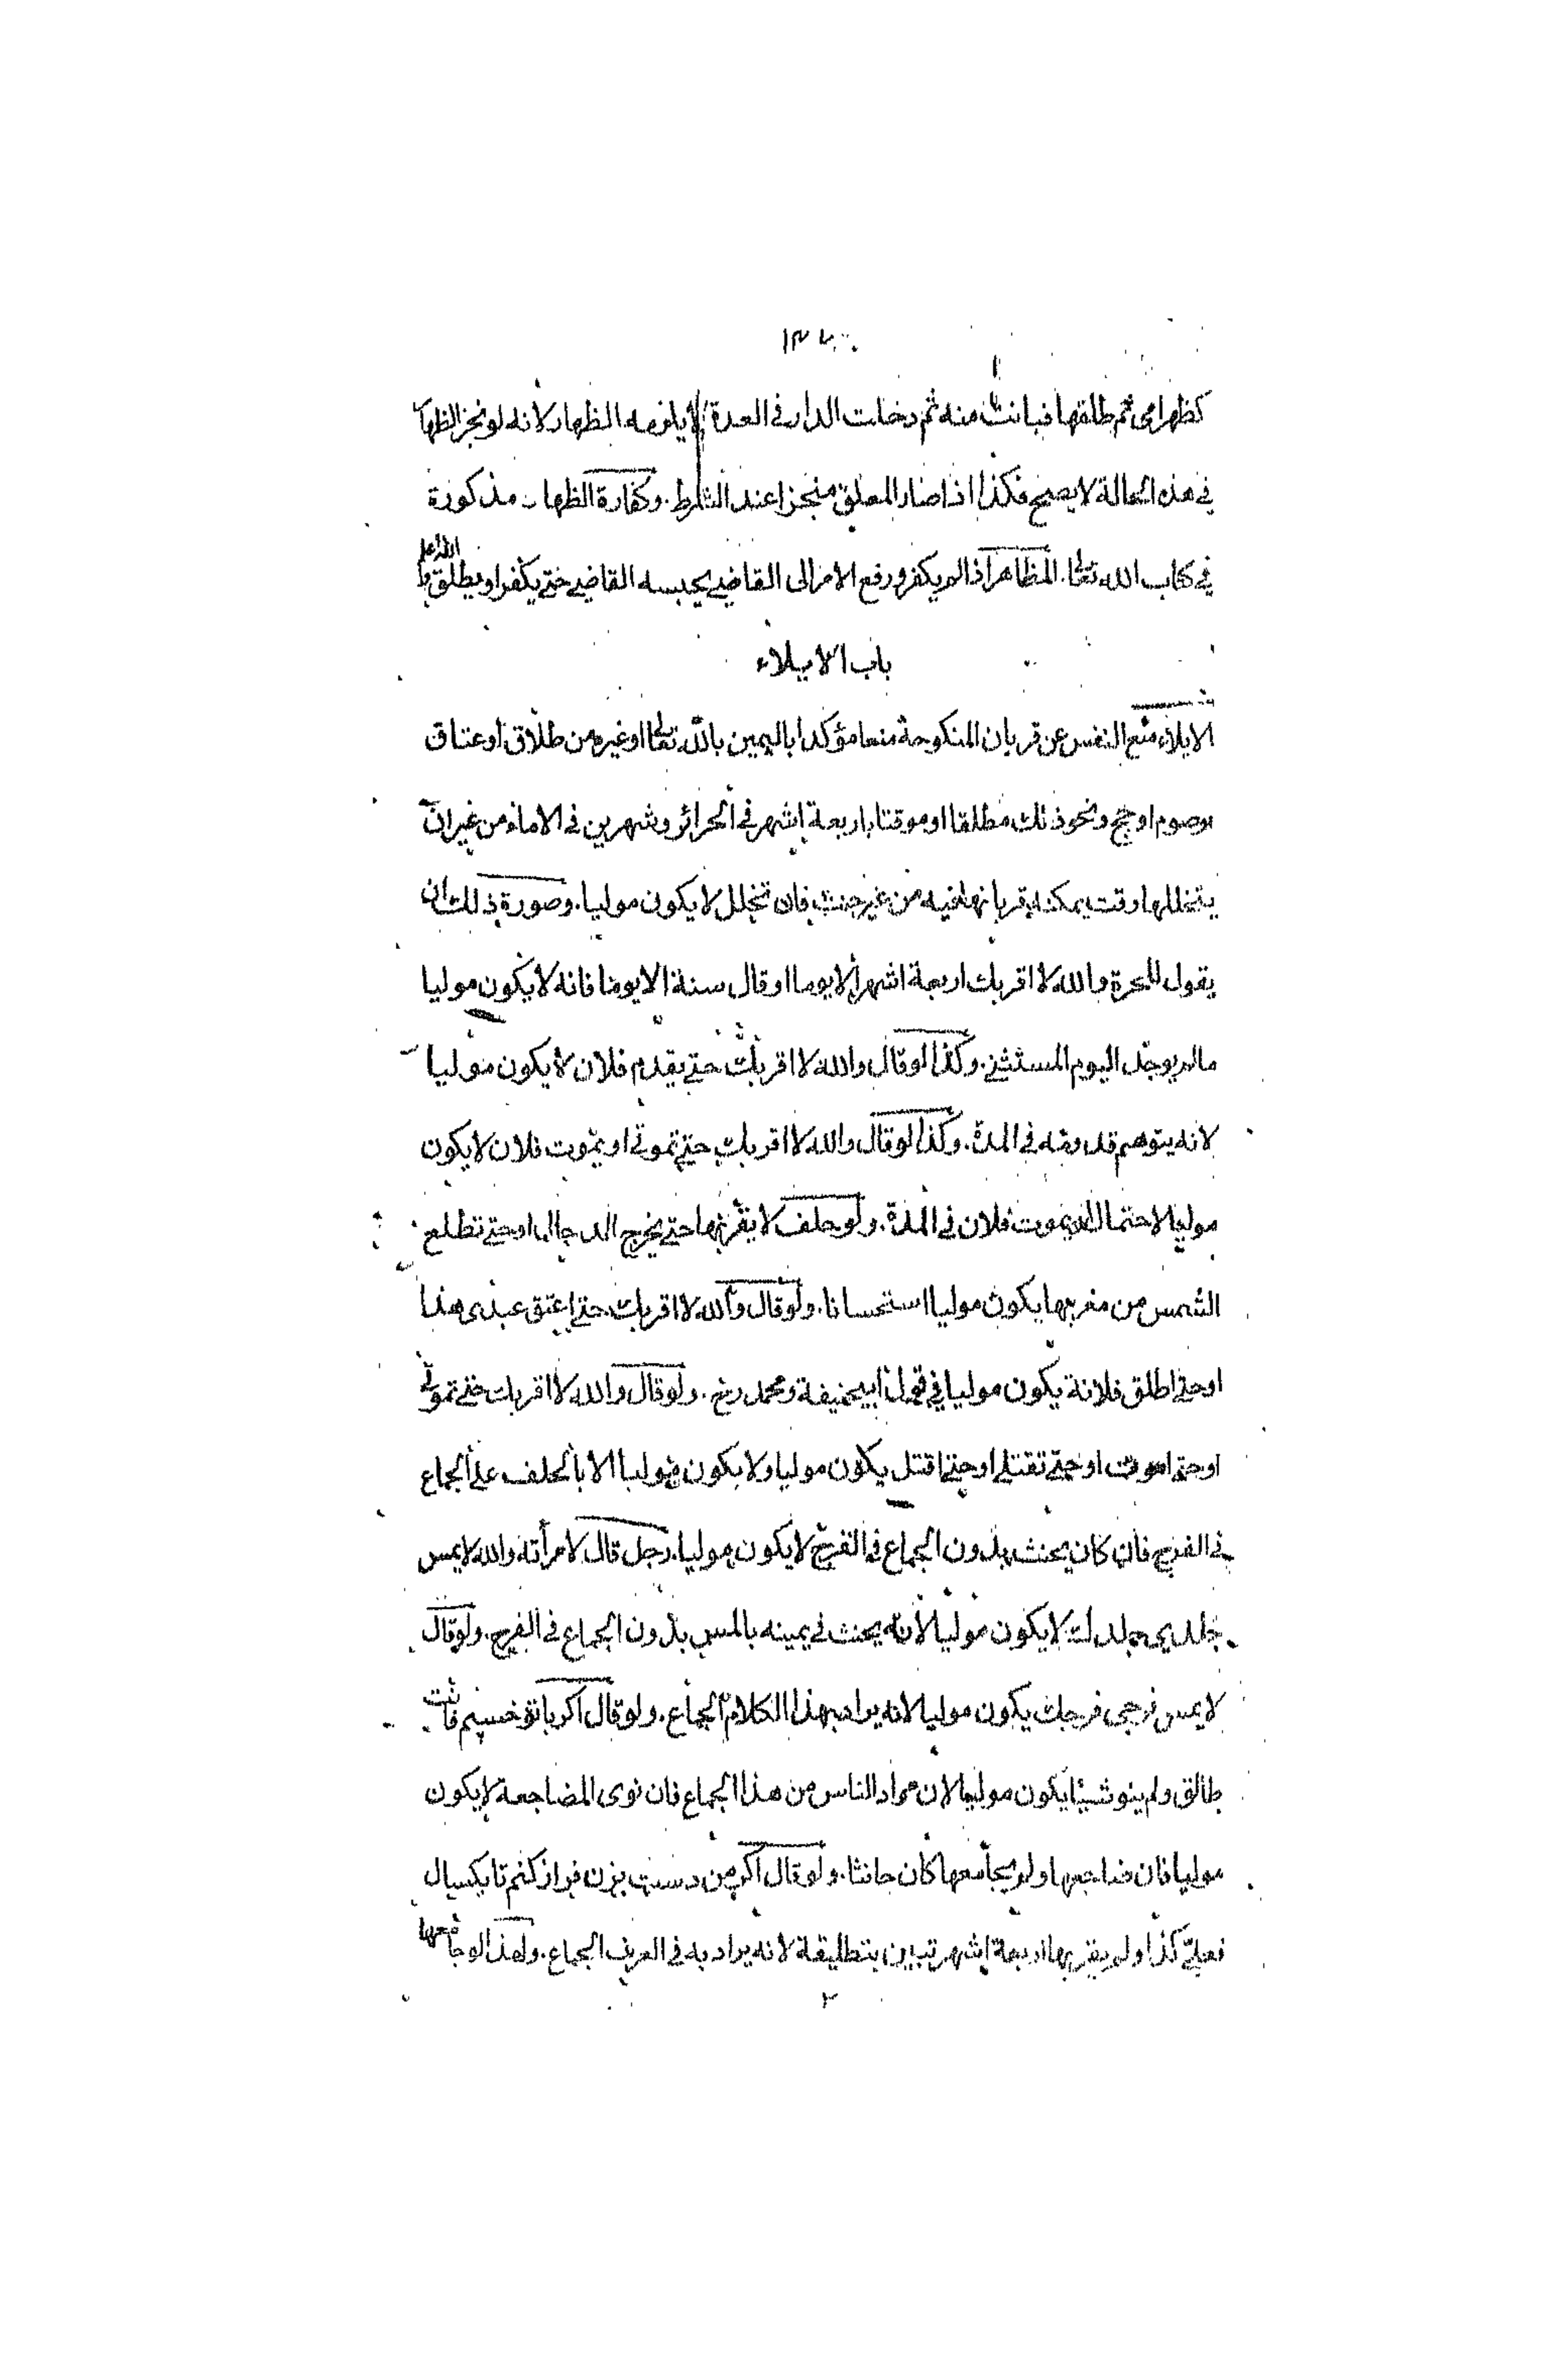 كظهر امى ثم طلقها فبانت منه ثم دخلت الدار فى العدة لا يلزمه الظهار لانه لو نجز الظهار
فى هذه الحالة لا يصح فكذا اذا صار المعلق منجزا عند الشرط. وكفارة الظهار مذكورة
فى كتاب الله تعالى. المظاهر اذا لم يكفر ورفع الامر الى القاضى يحبسه القاضى حتى يكفر او يطلق والله اعلم
باب الايلاء
الايلاء منع النفس عن قربان المنكوحة منعا مؤكدا باليمين بالله تعالى او غيره من طلاق او عتاق
او صوم او حج ونحو ذلك مطلقا او موقتا باربعة اشهر فى الحرائر وشهرين فى الاماء من غير ان
يتخللها وقت يمكنه قربانها فيه من غير حنث فان تخلل لا يكون موليا. وصورة ذلك ان
يقول للحرة والله لا اقربك اربعة اشهر الا يوما او قال سنة الا يوما فانه لا يكون موليا
مالم يوجد اليوم المستثنى. وكذا لو قال والله لا اقربك حتى يقدم فلان لا يكون موليا
لانه يتوهم قدومه فى المدة. وكذا لو قال والله لا اقربك حتى تموتى او يموت فلان لا يكون
موليا لاحتمال ان يموت فلان فى المدة. ولو حلف لا يقربها حتى يخرج الدجال او حتى تطلع
الشمس من مغربها يكون موليا استحسانا. ولو قال والله لا اقربك حتى اعتق عبدى هذا
او حتى اطلق فلانة يكون موليا فى قول ابيحنيفة ومحمد رح. ولو قال والله لا اقربك حتى تموتى
او حتى اموت او حتى تقتلى او حتى اقتل يكون موليا ولا يكون موليا الا بالحلف على الجماع
فى الفرج فان كان يحنث بدون الجماع فى الفرج لا يكون موليا. رجل قال لامرأته والله لا يمس
جلدى جلدك لا يكون موليا لانه يحنث فى يمينه بالمس بدون الجماع فى الفرج. ولو قال
لا يمس فرجى فرجك يكون موليا لانه يراد بهذا الكلام الجماع. ولو قال اكر باتو خسپم فانت
طالق ولم ينو شيئا يكون موليا لان مراد الناس من هذا الجماع فان نوى المضاجعة لا يكون
موليا فان ضاجعها ولم يجامعها كان حانثا. ولو قال اكر من دست بزن فراز كنم تا يكسال
فعلىّ كذا ولم يقربها اربعة اشهر تبين بتطليقة لانه يراد به فى العرف الجماع. ولهذا لو جامعها
٢